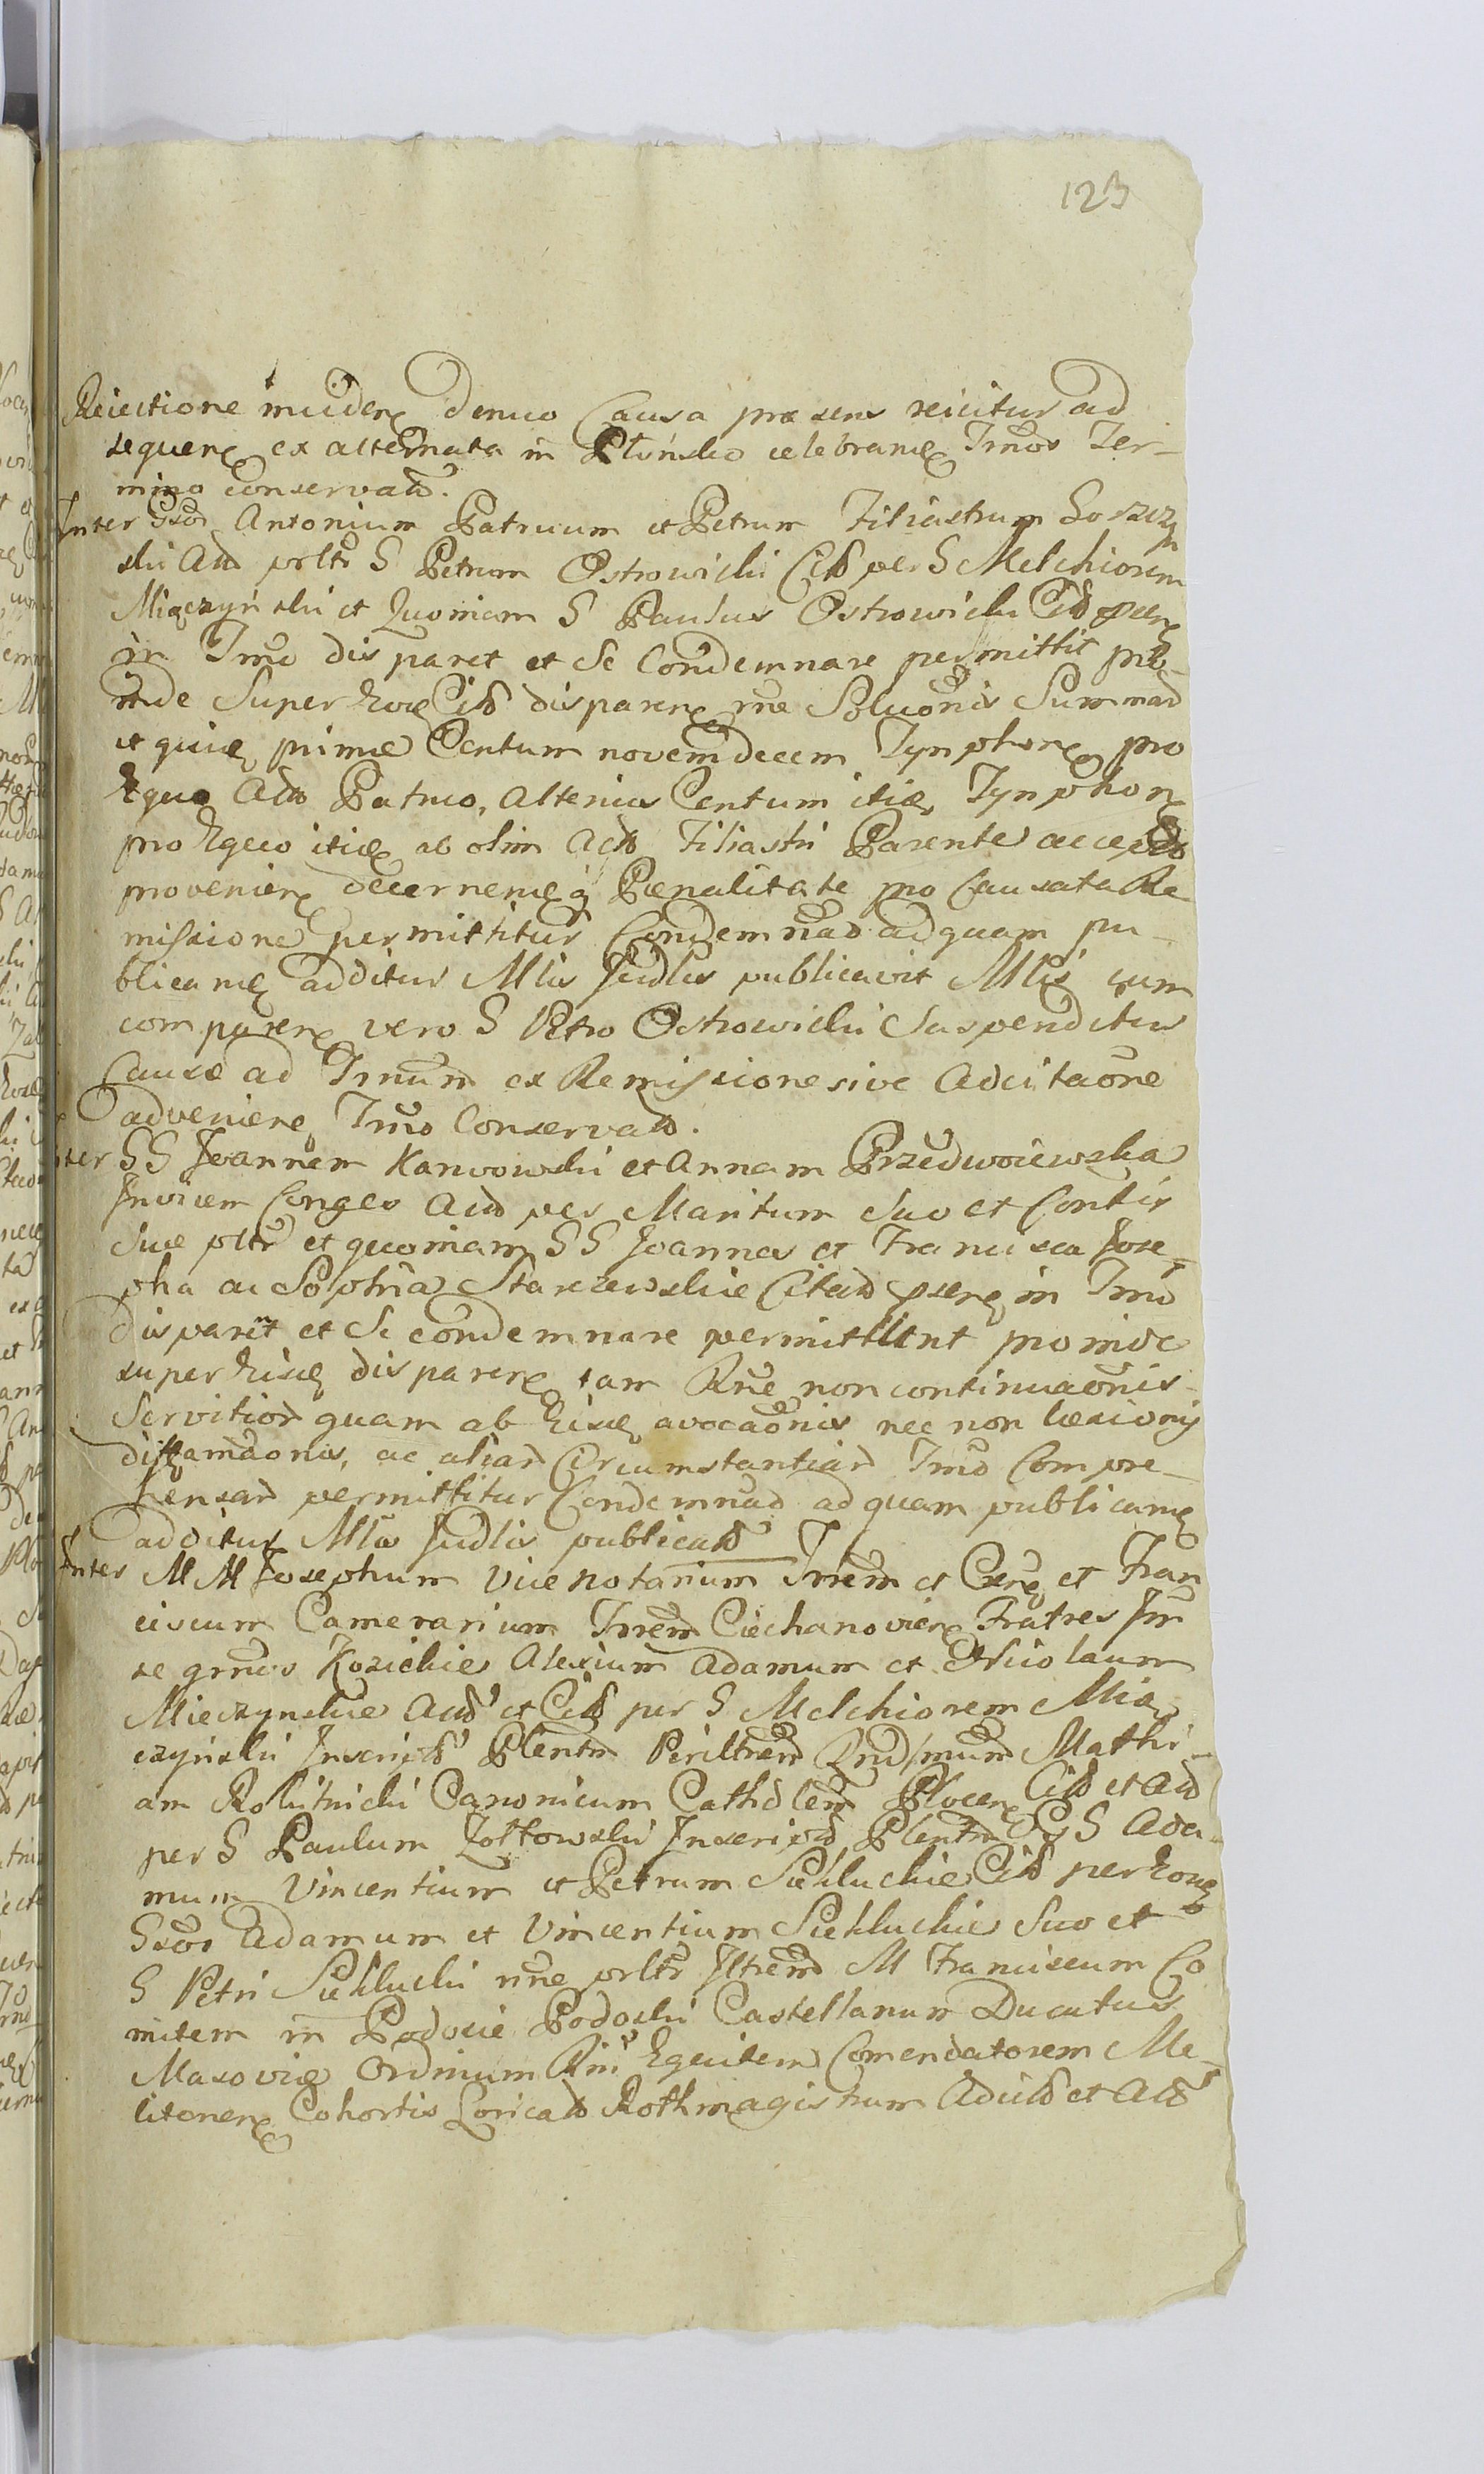 123
Reiectione incidens denuo Causa praesens reiicitur ad
sequens ex alternata in Płonsko celebrand Trnos Ter-
mino conservato.
Inter Gsos Antonium Patruum et Petrum Filiastrum Gorszcz
ski Act prltr G Petrum Ostrowicki Cit per G Melchiorem
Mięczyński et Quoniam G Paulus Ostrowicki Cit psens
in Trmo disparet et se Condemnare permittit pro-
inde super hoc Cit disparen rne Soluonis Summar
et quid primae Centum novemdecem Tynphon pro
Equo Acto Patruo, Alterius Centum itid Tynphon
pro Equo itid ab olim Acto Filiastri Parente accepto
provenien decernend q Paenalitate pro Causata Re
missione permittitur Condemnao ad quam pu-
blicand additur Mlis Judlis publicavit Mlis cum
comparen vero G Petro Ostrowicki Suspenditur
Causa ad Trnum ex Remissione sive Adcitaone
advenien Trmo Conservato.
ter GG Joannem Karwowski et Annam Przedwoiewska
Invicem Conges Act per Maritum Suo et Contis
Suae pltr et quoniam GG Joannes et Francisca Jose-
pha ac Sophia Starzewskie Citati psens in Trmo
disparent et se condemnare permittunt proinde
super hisce disparen tam Rne non continuaonis
Servitior quam ab hisce avocaonis nec non laesionis
diffamaonis, ac aliar Circumstantiar Trmo Compre-
hensar permittitur Condemnao ad quam publicand
additur Mlis Judlis publicato
Inter MM Josephum Vicenotarium Trrem et Csen et Fran
ciscum Camerarium Trrem Ciechanovien Fratres Inr
se grnos Kozickie Alexium Adamum et Nicolaum
Mieczynskie Act et Cit per G Melchiorem Mię
czyński Inscript Plentm Perillrem Rndssmum Mathi-
am Rokitnicki Canonicum Cathdlem Plocen Cit et Act
per G Paulum Zołtowski Inscript Plentm GG Ada-
mum Vincentium et Petrum Siekluckie Cit per hosce
Gsos Adamum et Vincentium Siekluckie Suo et
G Petri Sieklucki nne prltr Illrem M Franciscum Co
mitem in Podosie Podoski Castellanum Ducatus
Masoviae Ordinum Rni Equitem Comendatorem Me-
litensem Cohortis Loricato Rothmagistrum Adcit et Act